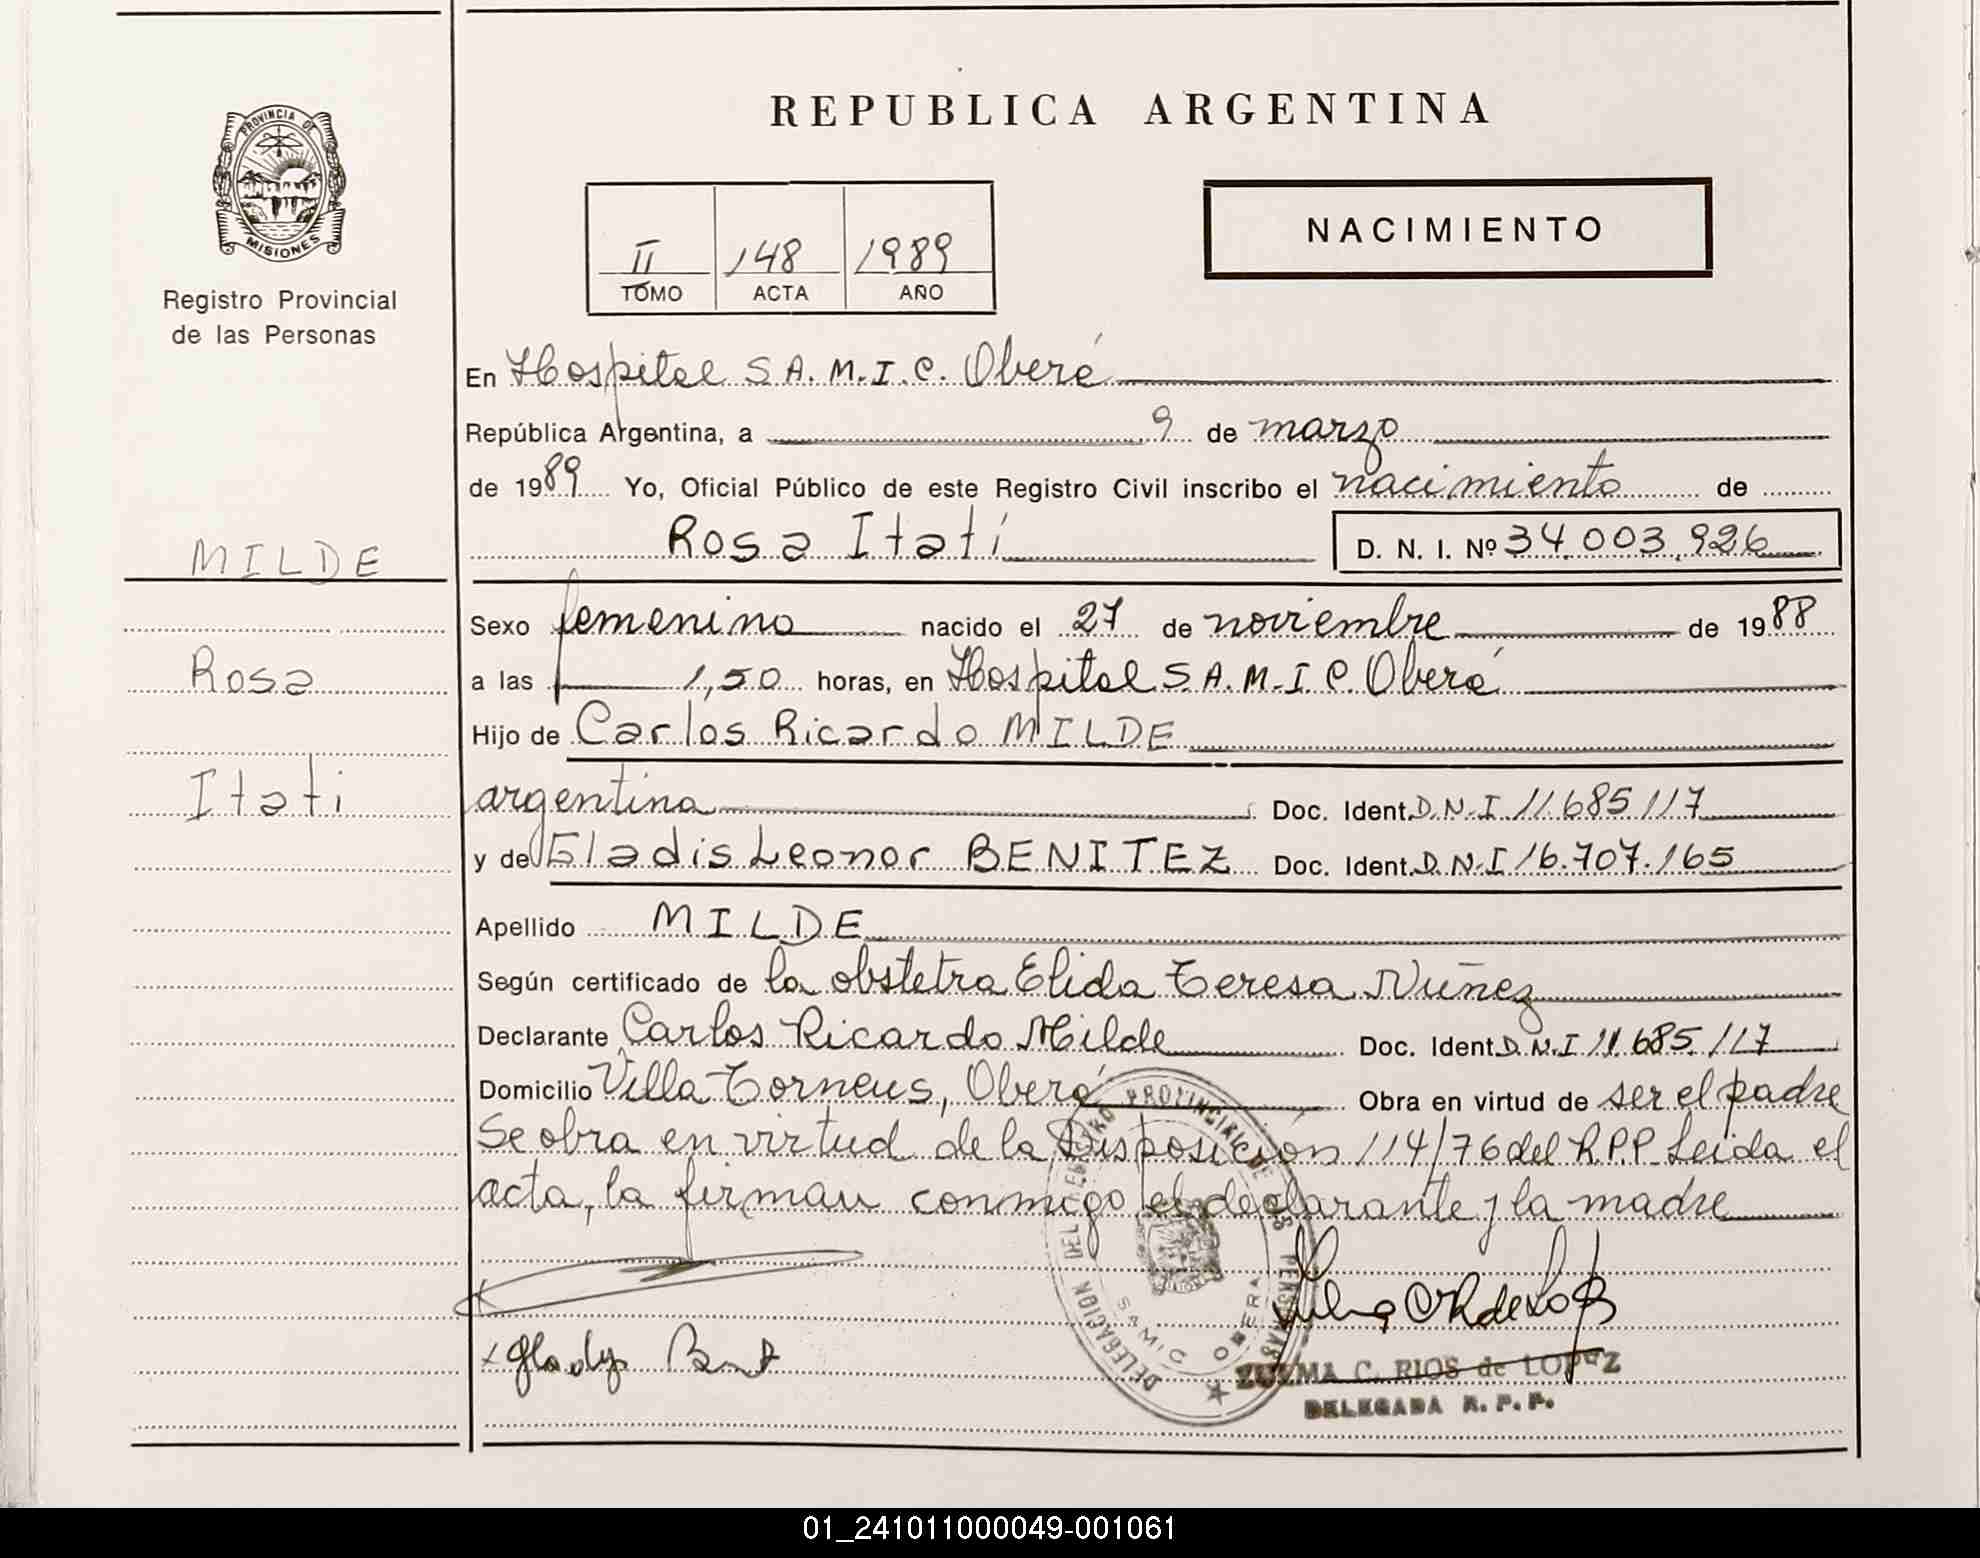 PROVINCIA DE
MISIONES
Registro Provincial
de las Personas
MILDE
Rosa
Itatí
REPUBLICA ARGENTINA
II 148 1989
TOMO ACTA AÑO
NACIMIENTO
En Hospital S.A.M.I.C. Oberá
República Argentina, a 9 de marzo
de 1989 Yo, Oficial Público de este Registro Civil inscribo el nacimiento de
Rosa Itatí D. N. I. Nº 34.003.926
Sexo femenino nacido el 27 de noviembre de 1988
a las 1,50 horas, en Hospital S.A.M.I.C. Oberá
Hijo de Carlos Ricardo MILDE
argentina Doc. Ident. D.N.I 11.685.117
y de Gladis Leonor BENITEZ Doc. Ident. D.N.I 16.707.165
Apellido MILDE
Según certificado de la obstetra Elida Teresa Núñez
Declarante Carlos Ricardo Milde Doc. Ident D.N.I 11.685.117
Domicilio Villa Torneus, Oberá Obra en virtud de ser el padre
Se obra en virtud de la Disposición 114/76 del R.P.P. Leida el
acta, la firman conmigo el declarante y la madre
DELEGACION DEL REGISTRO PROVINCIAL DE LAS PERSONAS
SAMIC OBERA
x Gladys
ZULMA C. RIOS de LOPEZ
DELEGADA R. P. P.
01_241011000049-001061